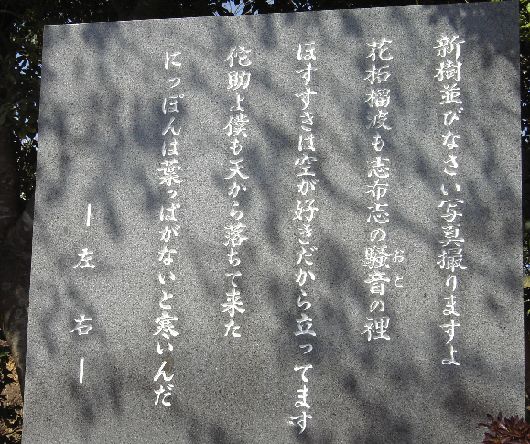 新樹並びなさい写真撮りますよ
花柘榴皮も志布志の騒音の裡
おと
ほすすきは空が好きだから立ってます
侘助よ僕も天から落ちて来た
にっぽんは葉っぱがないと寒いんだ
ー左右ー